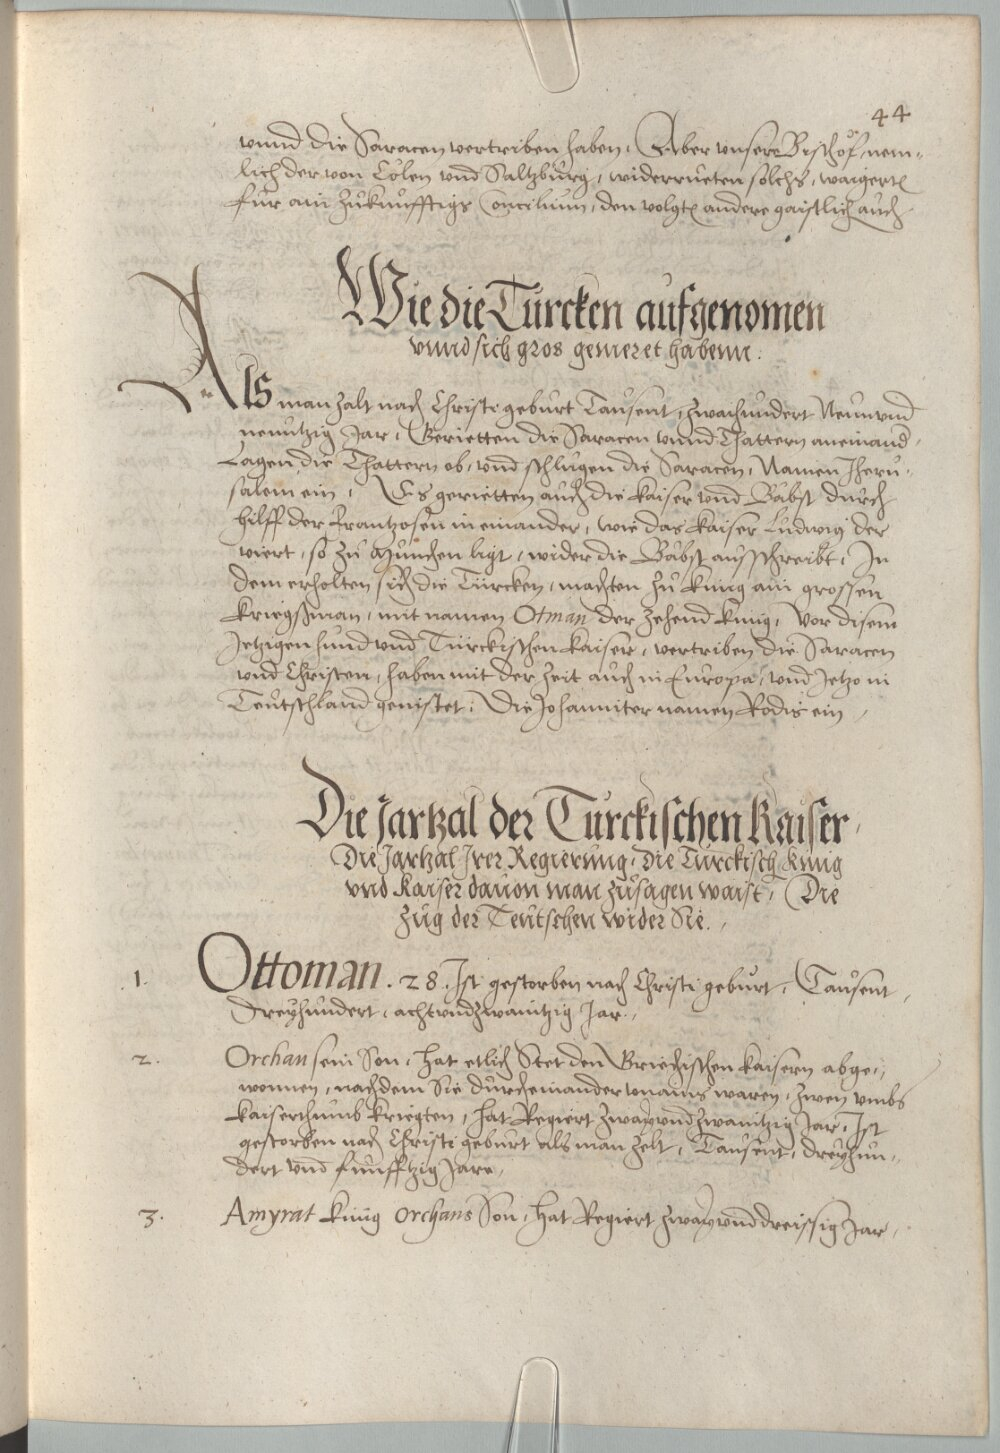 44
vnnd die Saracen vertriben haben. Aber vnsere Bischof, nem-
lich der von Cölen vnd Saltzburg, widerrueten solchs, waigertn
für ain zukunfftigs Concilium, den volgtn andere gaistlich auch
Wie die Türcken aufgenomen
vnnd sich gros gemeret habenn.
Als man zalt nach Christi geburt Tausent, zwaihundert Neunvnd
neuntzig Jar, Gerietten die Saracen vnnd Thattern aneinand,
Lagen die Thattern ob, vnd schlugen die Saracen, Namen Iheru-
salem ein, Es gerietten auch die kaiser vnd Bäbst durch
hilff der Frantzosen in einander, wie das kaiser Ludwig der
viert, so zu München ligt, wider die Bäbst ausschreibt, In
dem erholten sich die Türcken, machten zu künig ain grossen
kriegsman, mit namen Otman der zehend künig, vor disem
Jetzigen hund vnd Türckischen kaiser, vertriben die Saracen
vnd Christen, haben mit der zeit auch in Europa, vnd Jetzo in
Teutschland genistet, Die Johanniter namen Rodis ein,
Die Jartzal der Türckischen Kaiser,
Die Jartzal Irer Regierung, die Türckisch Künig
vnd Kaiser dauon man zusagen waist, Die
Zug der Teutschen wider Sie.
1. Ottoman. 28. Ist gestorben nach Christi geburt, Tausent,
dreyhundert, achtvndzwaintzig Jar.
2. Orchan sein Son, hat etlich Stet den Griechischen kaisern abge-
wonnen, nachdem Sie durcheinander vnains waren, zwen vmbs
kaiserthumb kriegten, hat Regiert zwayvndzwaintzig Jar, Ist
gestorben nach Christi geburt als man zelt, Tausent, dreyhun-
dert vnd funfftzig Jare,
3. Amyrat künig Orchans Son, hat Regiert zwayvnddreissig Jar,